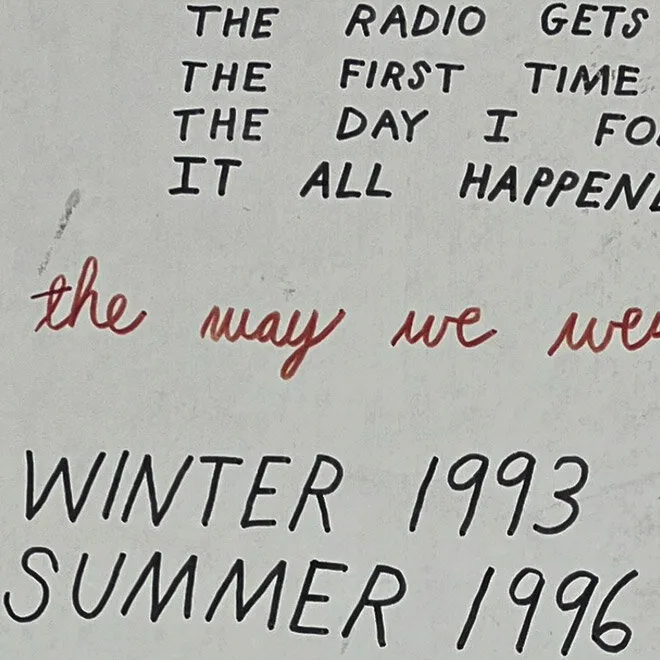 THE RADIO GETS
THE FIRST TIME
THE DAY I FO
IT ALL HAPPENE
the way we we
WINTER 1993
SUMMER 1996